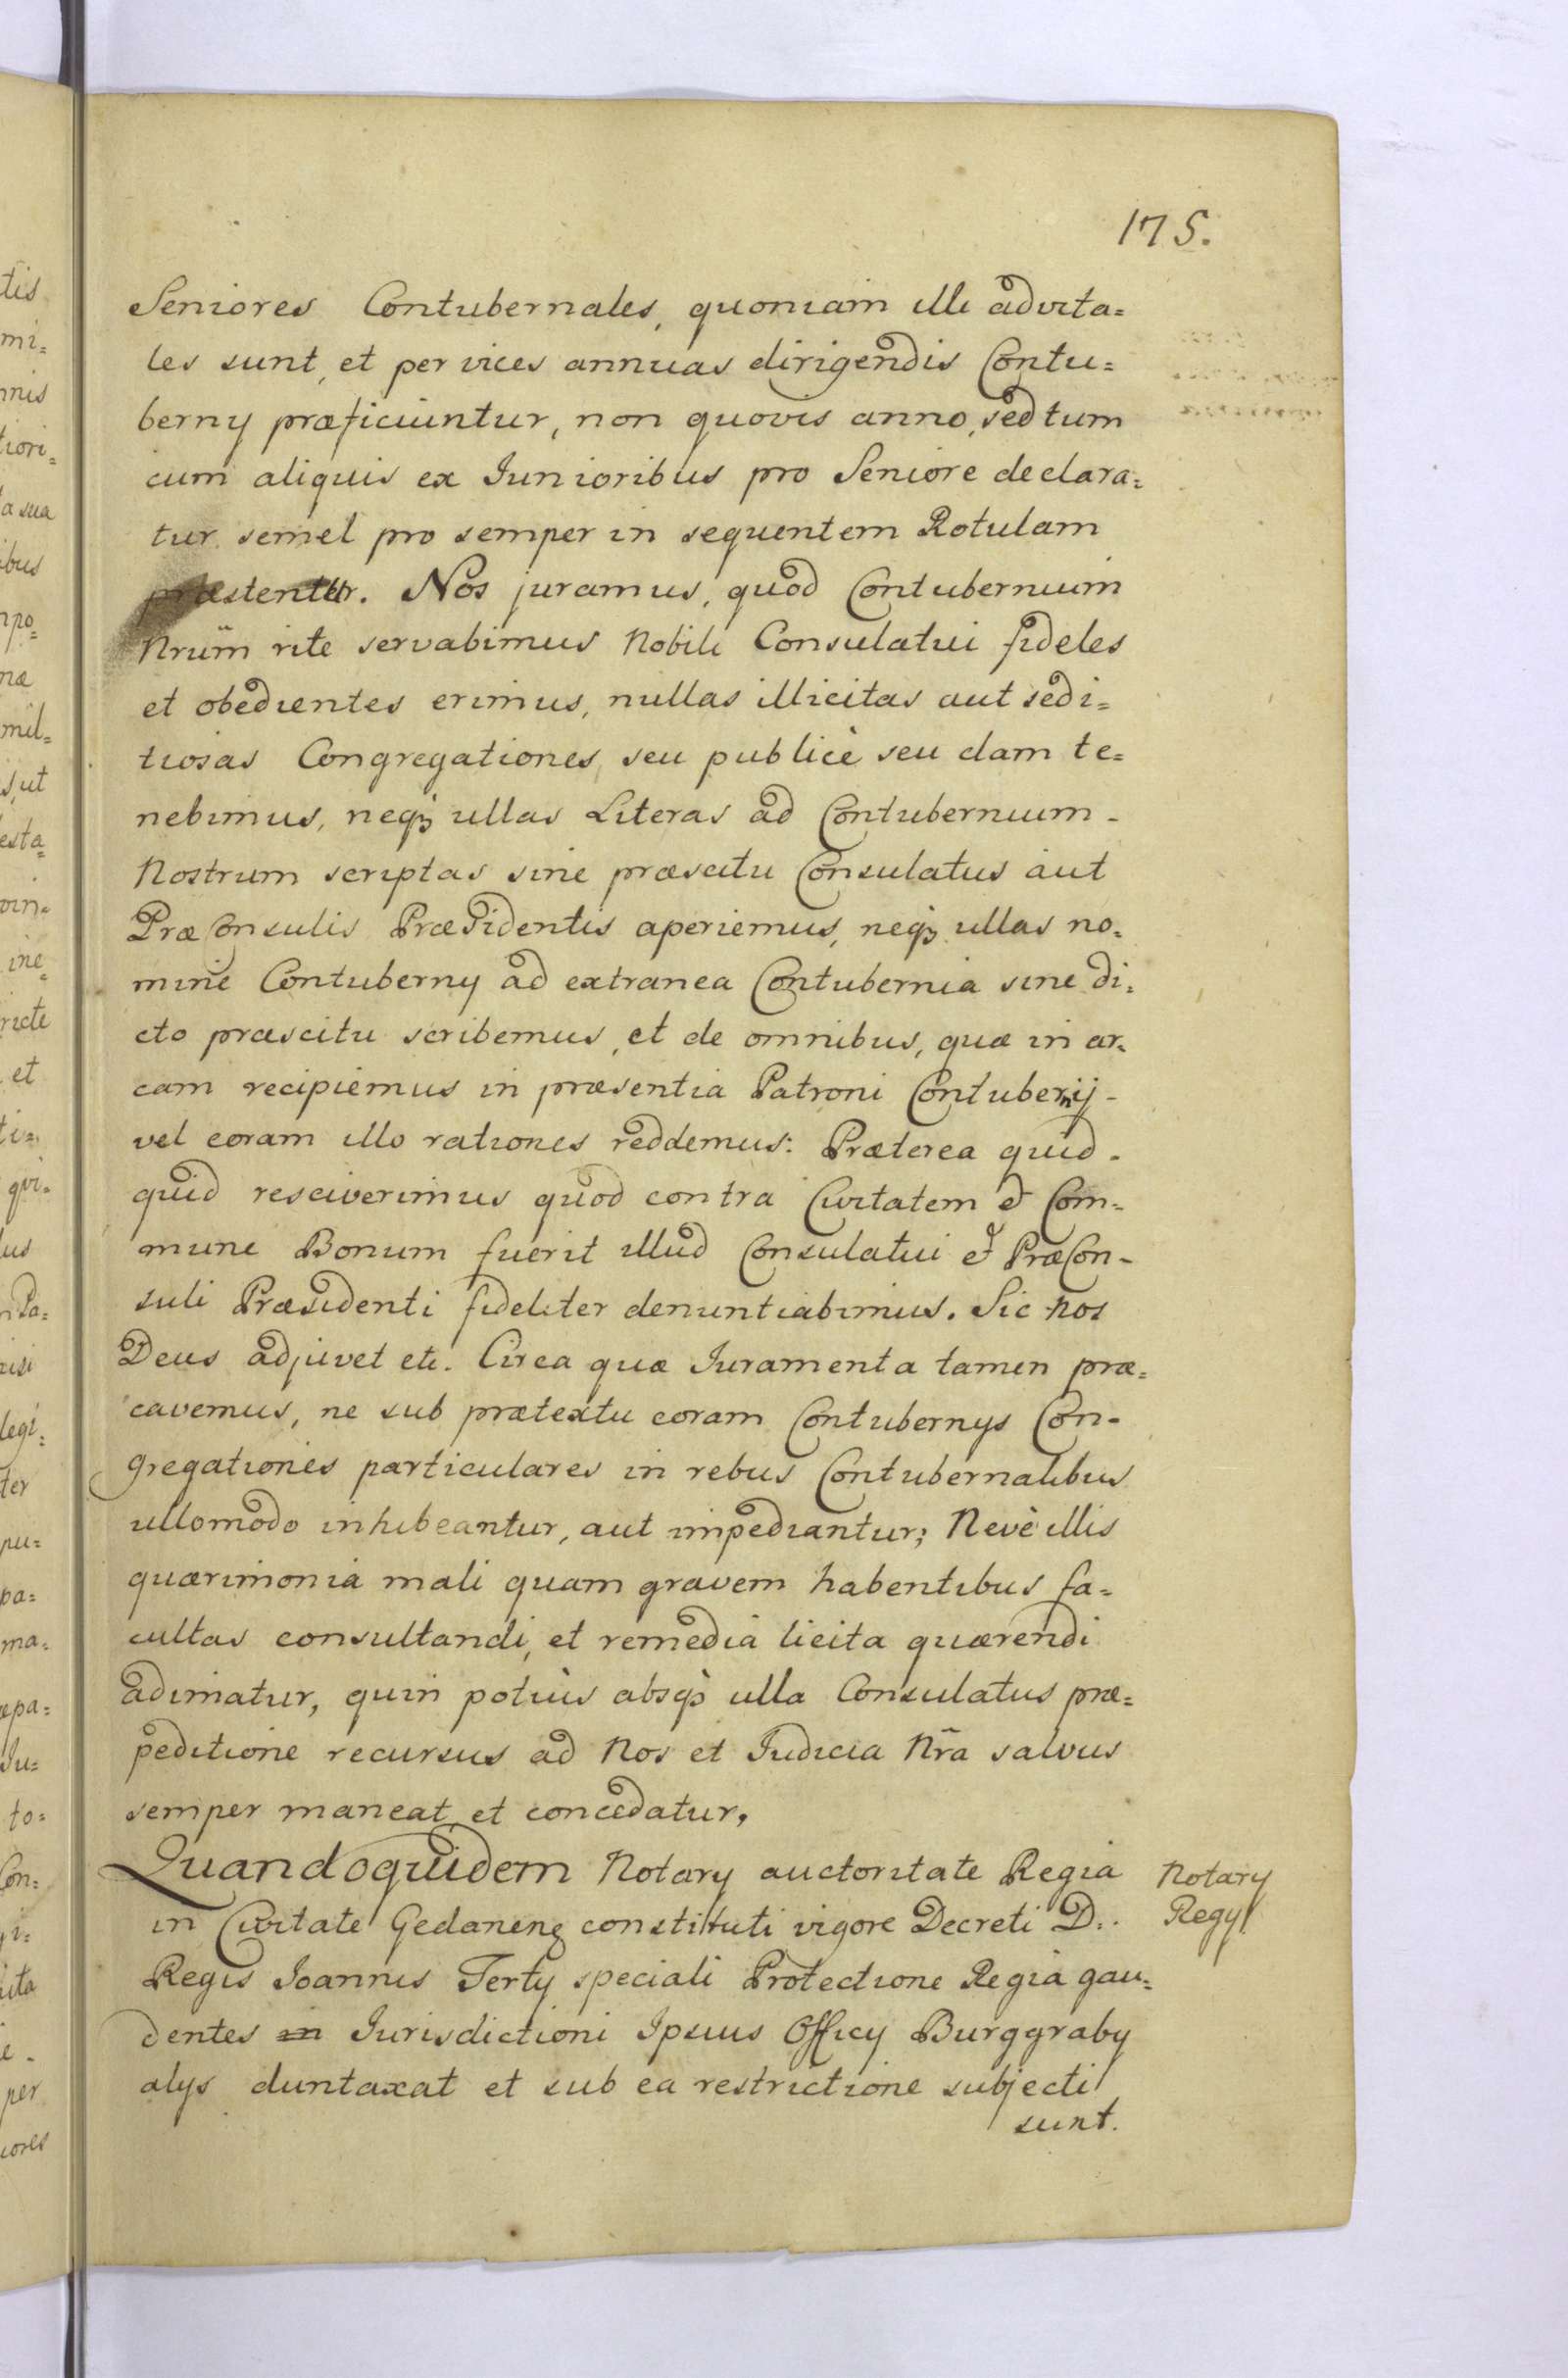 175.
Seniores Contubernales, quoniam illi advita=
les sunt, et per vices annuas dirigendis Contu=
berny præficiuntur, non quovis anno, sed tum
cum aliquis ex Junioribus pro Seniore declara=
tur semel pro semper in sequentem Rotulam
præstentur. Nos juramus, quod Contubernium
Nrum̃ rite servabimus Nobili Consulatui fideles
et obedientes erimus, nullas illicitas aut sedi=
tiosas Congregationes, seu publicè seu clam te=
nebimus, neq₃ ullas Literas ad Contubernium -
Nostrum scriptas sine præscitu Consulatus aut
PræConsulis Præsidentis aperiemus, neq₃ ullas no=
mine Contuberny ad extranea Contubernia sine di=
cto præscitu scribemus, et de omnibus, quæ in ar=
cam recipiemus in præsentia Patroni Contubernij -
vel coram illo rationes reddemus: Præterea quid -
quid resciverimus quod contra Civitatem & Com=
mune Bonum fuerit illud Consulatui & PræCon-
suli Præsidenti fideliter denuntiabimus. Sic nos
Deus adjuvet etc. Circa quæ Juramenta tamen præ=
cavemus, ne sub prætextu eoram Contubernys Con-
gregationes particulares in rebus Contubernalibus
ullomodo inhibeantur, aut impediantur; Nevè illis
quærimonia mali quam gravem habentibus fa=
cultas consultandi, et remedia licita quærendi
adimatur, quin potiùs absq₃ ulla Consulatus præ=
peditione recursus ad Nos et Judicia Nr̃a salvus
semper maneat et concedatur,
Quandoquidem Notary auctoritate Regia
in Civitate Gedanenꝫ constituti vigore Decreti D:.
Regis Joannis Terty speciali Protectione Regia gau=
dentes in Jurisdictioni Ipsius Officy Burggraby
alys duntaxat et sub ea restrictione subjecti
sunt.
Notary
Regy